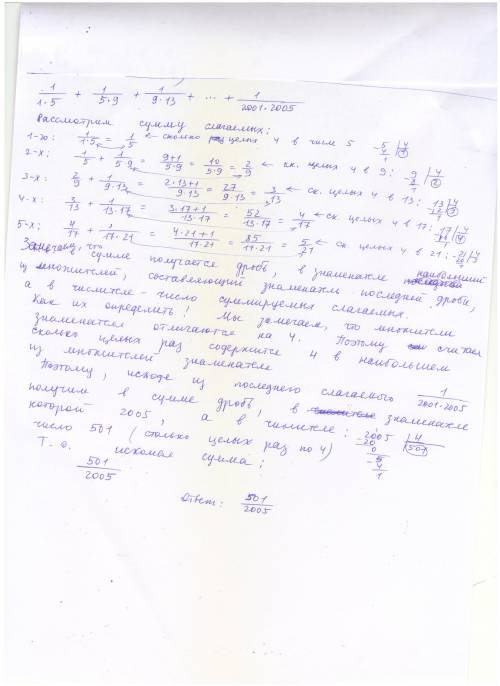 1/(1·5) + 1/(5·9) + 1/(9·13) + ... + 1/(2001·2005)
Рассмотрим сумму слагаемых:
1-го: 1/(1·5) = 1/5 ← сколько целых 4 в числе 5 5 | 4 4 1 1
2-х: 1/5 + 1/(5·9) = (9+1)/(5·9) = 10/(5·9) = 2/9 ← ск. целых 4 в 9: 9 | 4 8 2 1
3-х: 2/9 + 1/(9·13) = (2·13+1)/(9·13) = 27/(9·13) = 3/13 ← ск. целых 4 в 13: 13 | 4 12 3 1
4-х: 3/13 + 1/(13·17) = (3·17+1)/(13·17) = 52/(13·17) = 4/17 ← ск. целых 4 в 17: 17 | 4
5-х: 4/17 + 1/(17·21) = (4·21+1)/(17·21) = 85/(17·21) = 5/21 ← ск целых 4 в 21: 21 | 4
что в сумме получается дробь, в знаменателе наибольший
из множителей, составляющий знаменатель последней дроби,
а в числителе - число суммируемых слагаемых.
Как их определить? Мы замечаем, что множители
знаменателя отличаются на 4. Поэтому считаем
сколько целых раз содержится 4 в наибольшем
из множителей знаменателя
Поэтому, исходя из последнего слагаемого 1/(2001·2005)
получим в сумме дробь, в знаменателе
которой 2005, а в числителе:
число 501 (столько целых раз по 4) 2005 | 4 20 501 0 5 4 1
Т.о. искомая сумма:
501/2005
Ответ: 501/2005